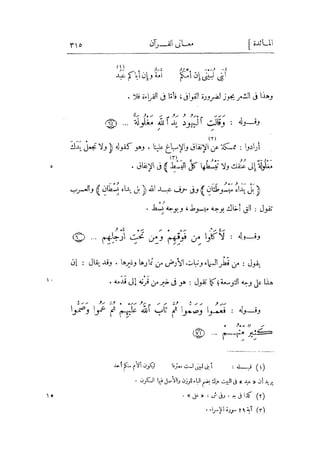 المائدة ] معانى القرآن ٣١٥
أبنى لبينى إن أمكم أمة وإن أباكم عبد (١)
وهذا فى الشعر يجوز لضرورة القوافى، فأما فى القراءة فلا .
وقوله : وَقَالَتِ ٱلْيَهُودُ يَدُ ٱللَّهِ مَغْلُولَةٌ ... (٦٤)
أرادوا : ممسكة عن الإنفاق والإسباغ علينا . وهو كقوله (٢) ( ولا تجعل يدك
مغلولة إلى عنقك ولا تبسطها كل البسط ) (٣) فى الإنفاق . ٥
( بل يداه مبسوطتان ) وفى حرف عبد الله ( بل يداه بسطان ) والعرب
تقول : الق أخاك بوجه مبسوط، وبوجه بسط .
وقوله : لَأَكَلُوا مِن فَوْقِهِمْ وَمِن تَحْتِ أَرْجُلِهِم ... (٦٦)
يقول : من قطر السماء ونبات الأرض من ثمارها وغيرها . وقد يقال : إن
هذا على وجه التوسعة؛ كما تقول : هو فى خير من قرنه إلى قدمه . ١٠
وقوله : فَعَمُوا وَصَمُّوا ثُمَّ تَابَ ٱللَّهُ عَلَيْهِمْ ثُمَّ عَمُوا وَصَمُّوا
كَثِيرٌ مِّنْهُمْ ... (٧١)
(١) قبله : أبنى لبينى لست معترفا ليكون ألأم منكم أحد
يريد أن « عبد » فى البيت حرك بضم الباء للوزن والأصل فيها السكون .
(٢) كذا فى ج . وفى ش : « على » . ١٥
(٣) آية ٢٩ سورة الإسراء .